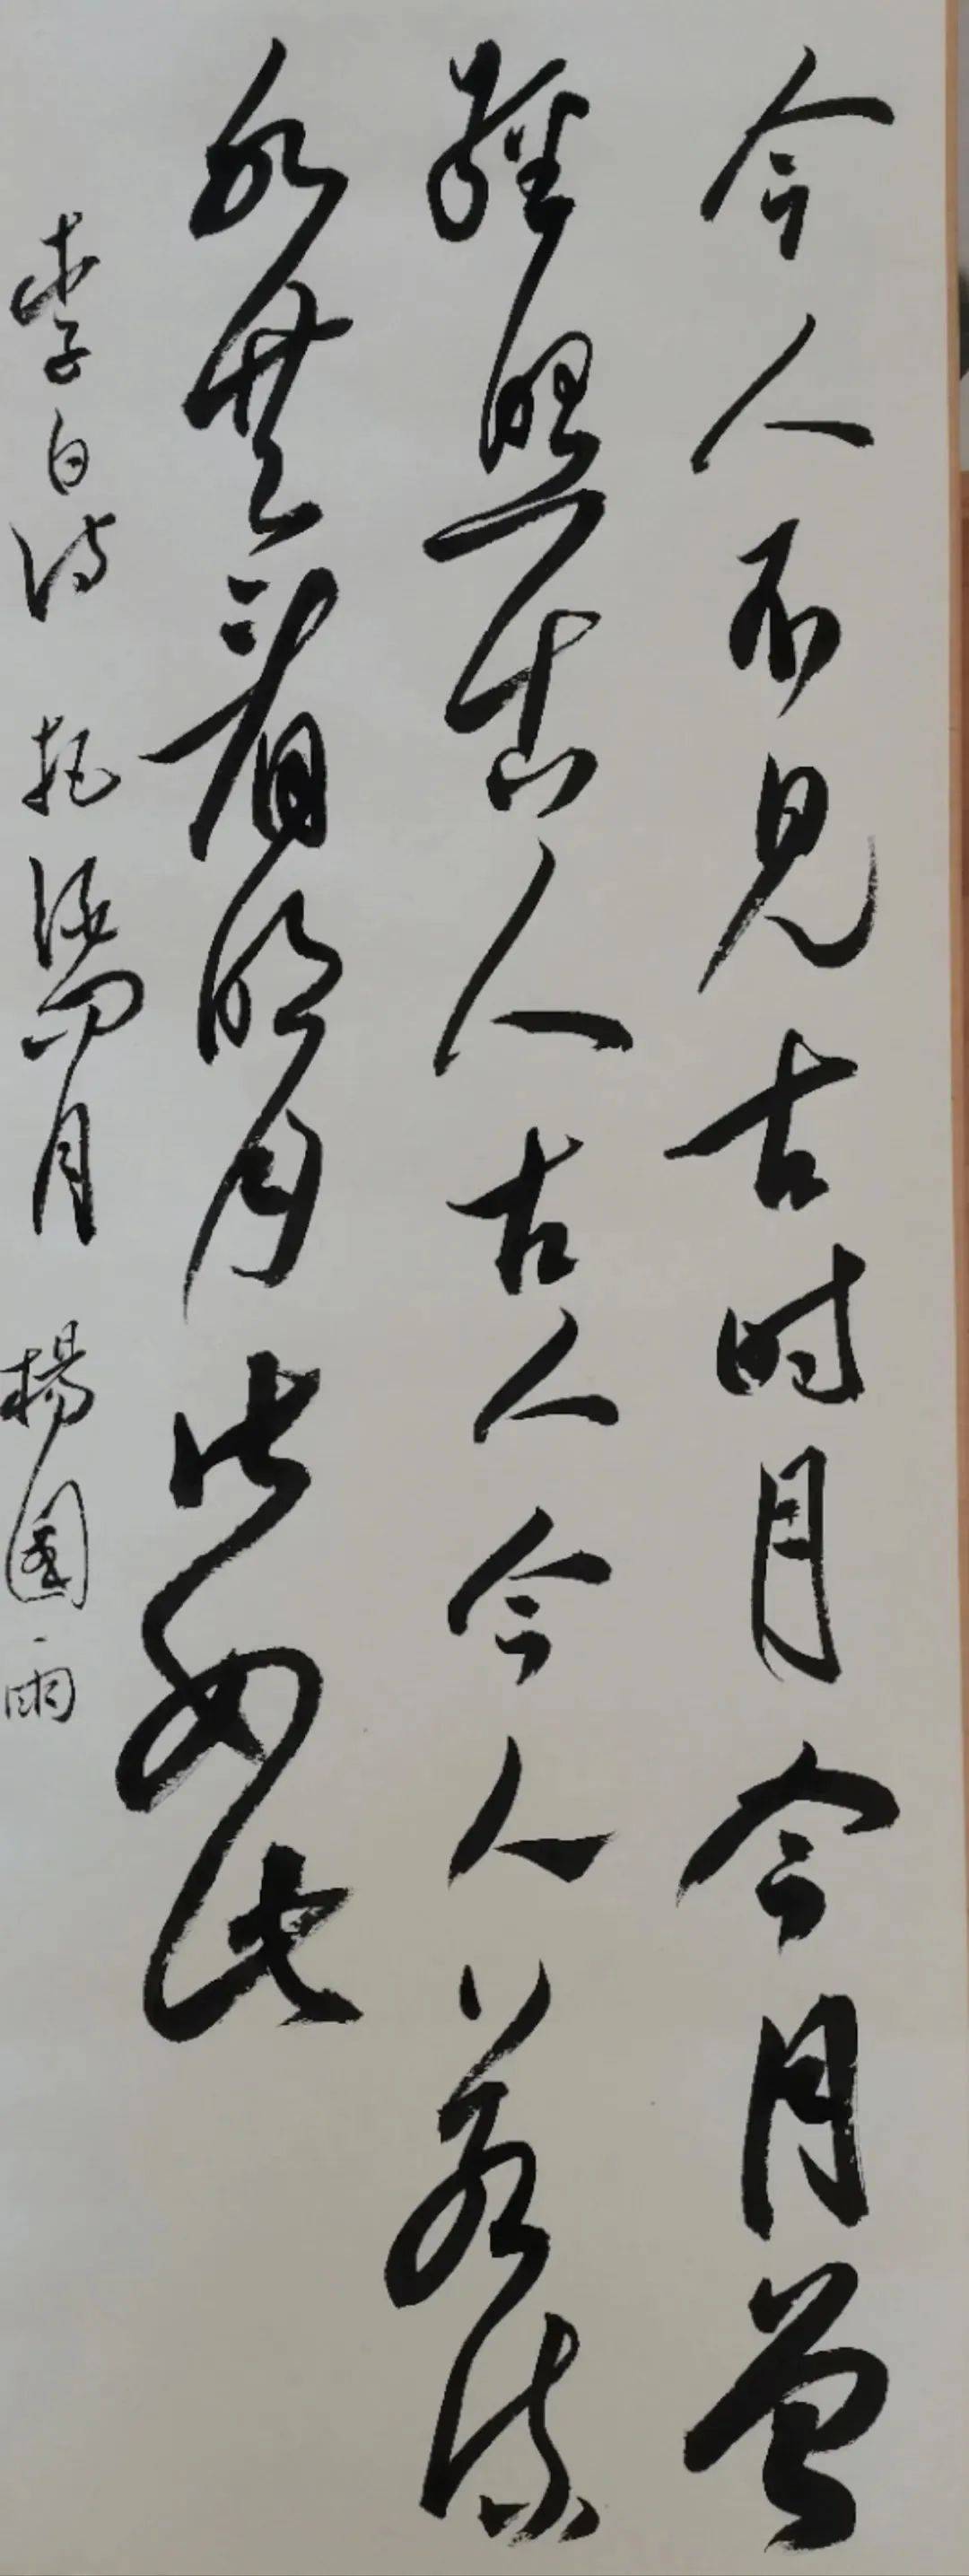 今人不見古时月今月曾
經照古人古人今人若流
水共看明月皆如此
李白诗 四月 楊國雨